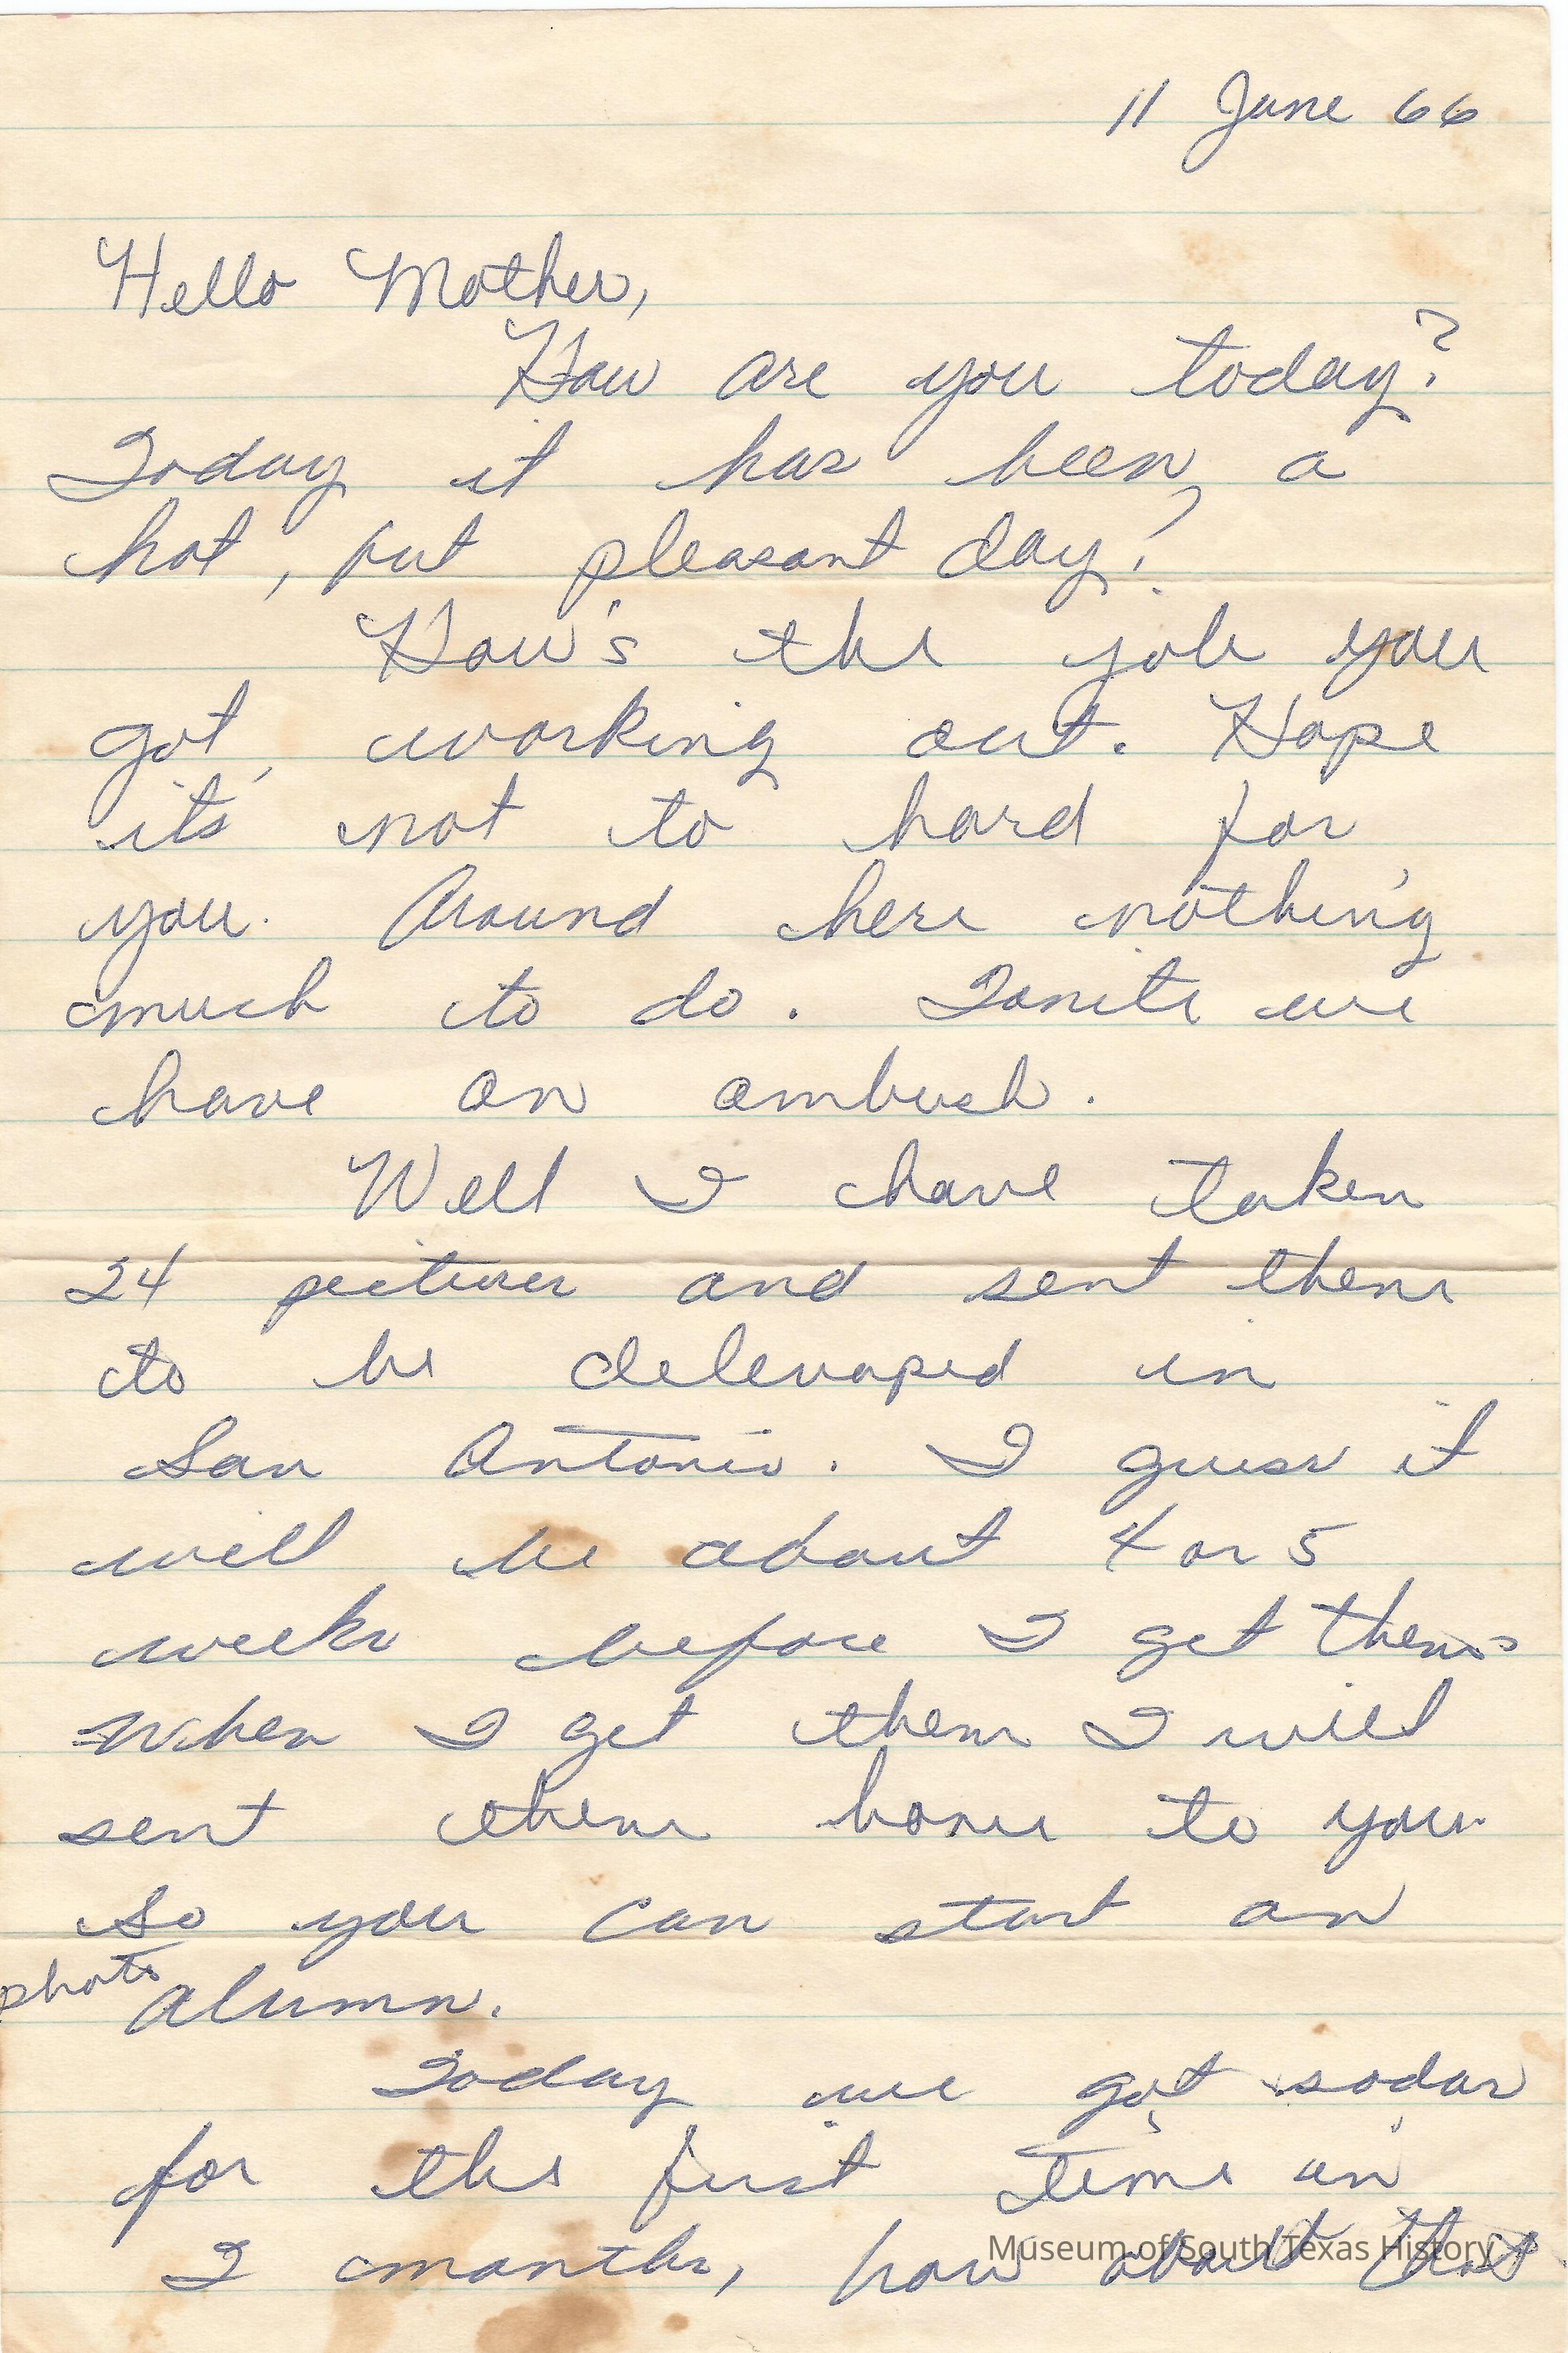 11 June 66
Hello Mother,
How are you today?
Today it has been a
hot, put pleasant day?
How's the job you
got, working out. Hope
it's not to hard for
you. Around here nothing
much to do. Tonite we
have an ambush.
Well I have taken
24 pictures and sent them
to be delevoped in
San Antonio. I guess it
will be about 4 or 5
weeks before I get them.
When I get them I will
sent them home to you.
So you can start an
photo alumn.
Today we got sodas
for the first time in
2 months, how about that
Museum of South Texas History